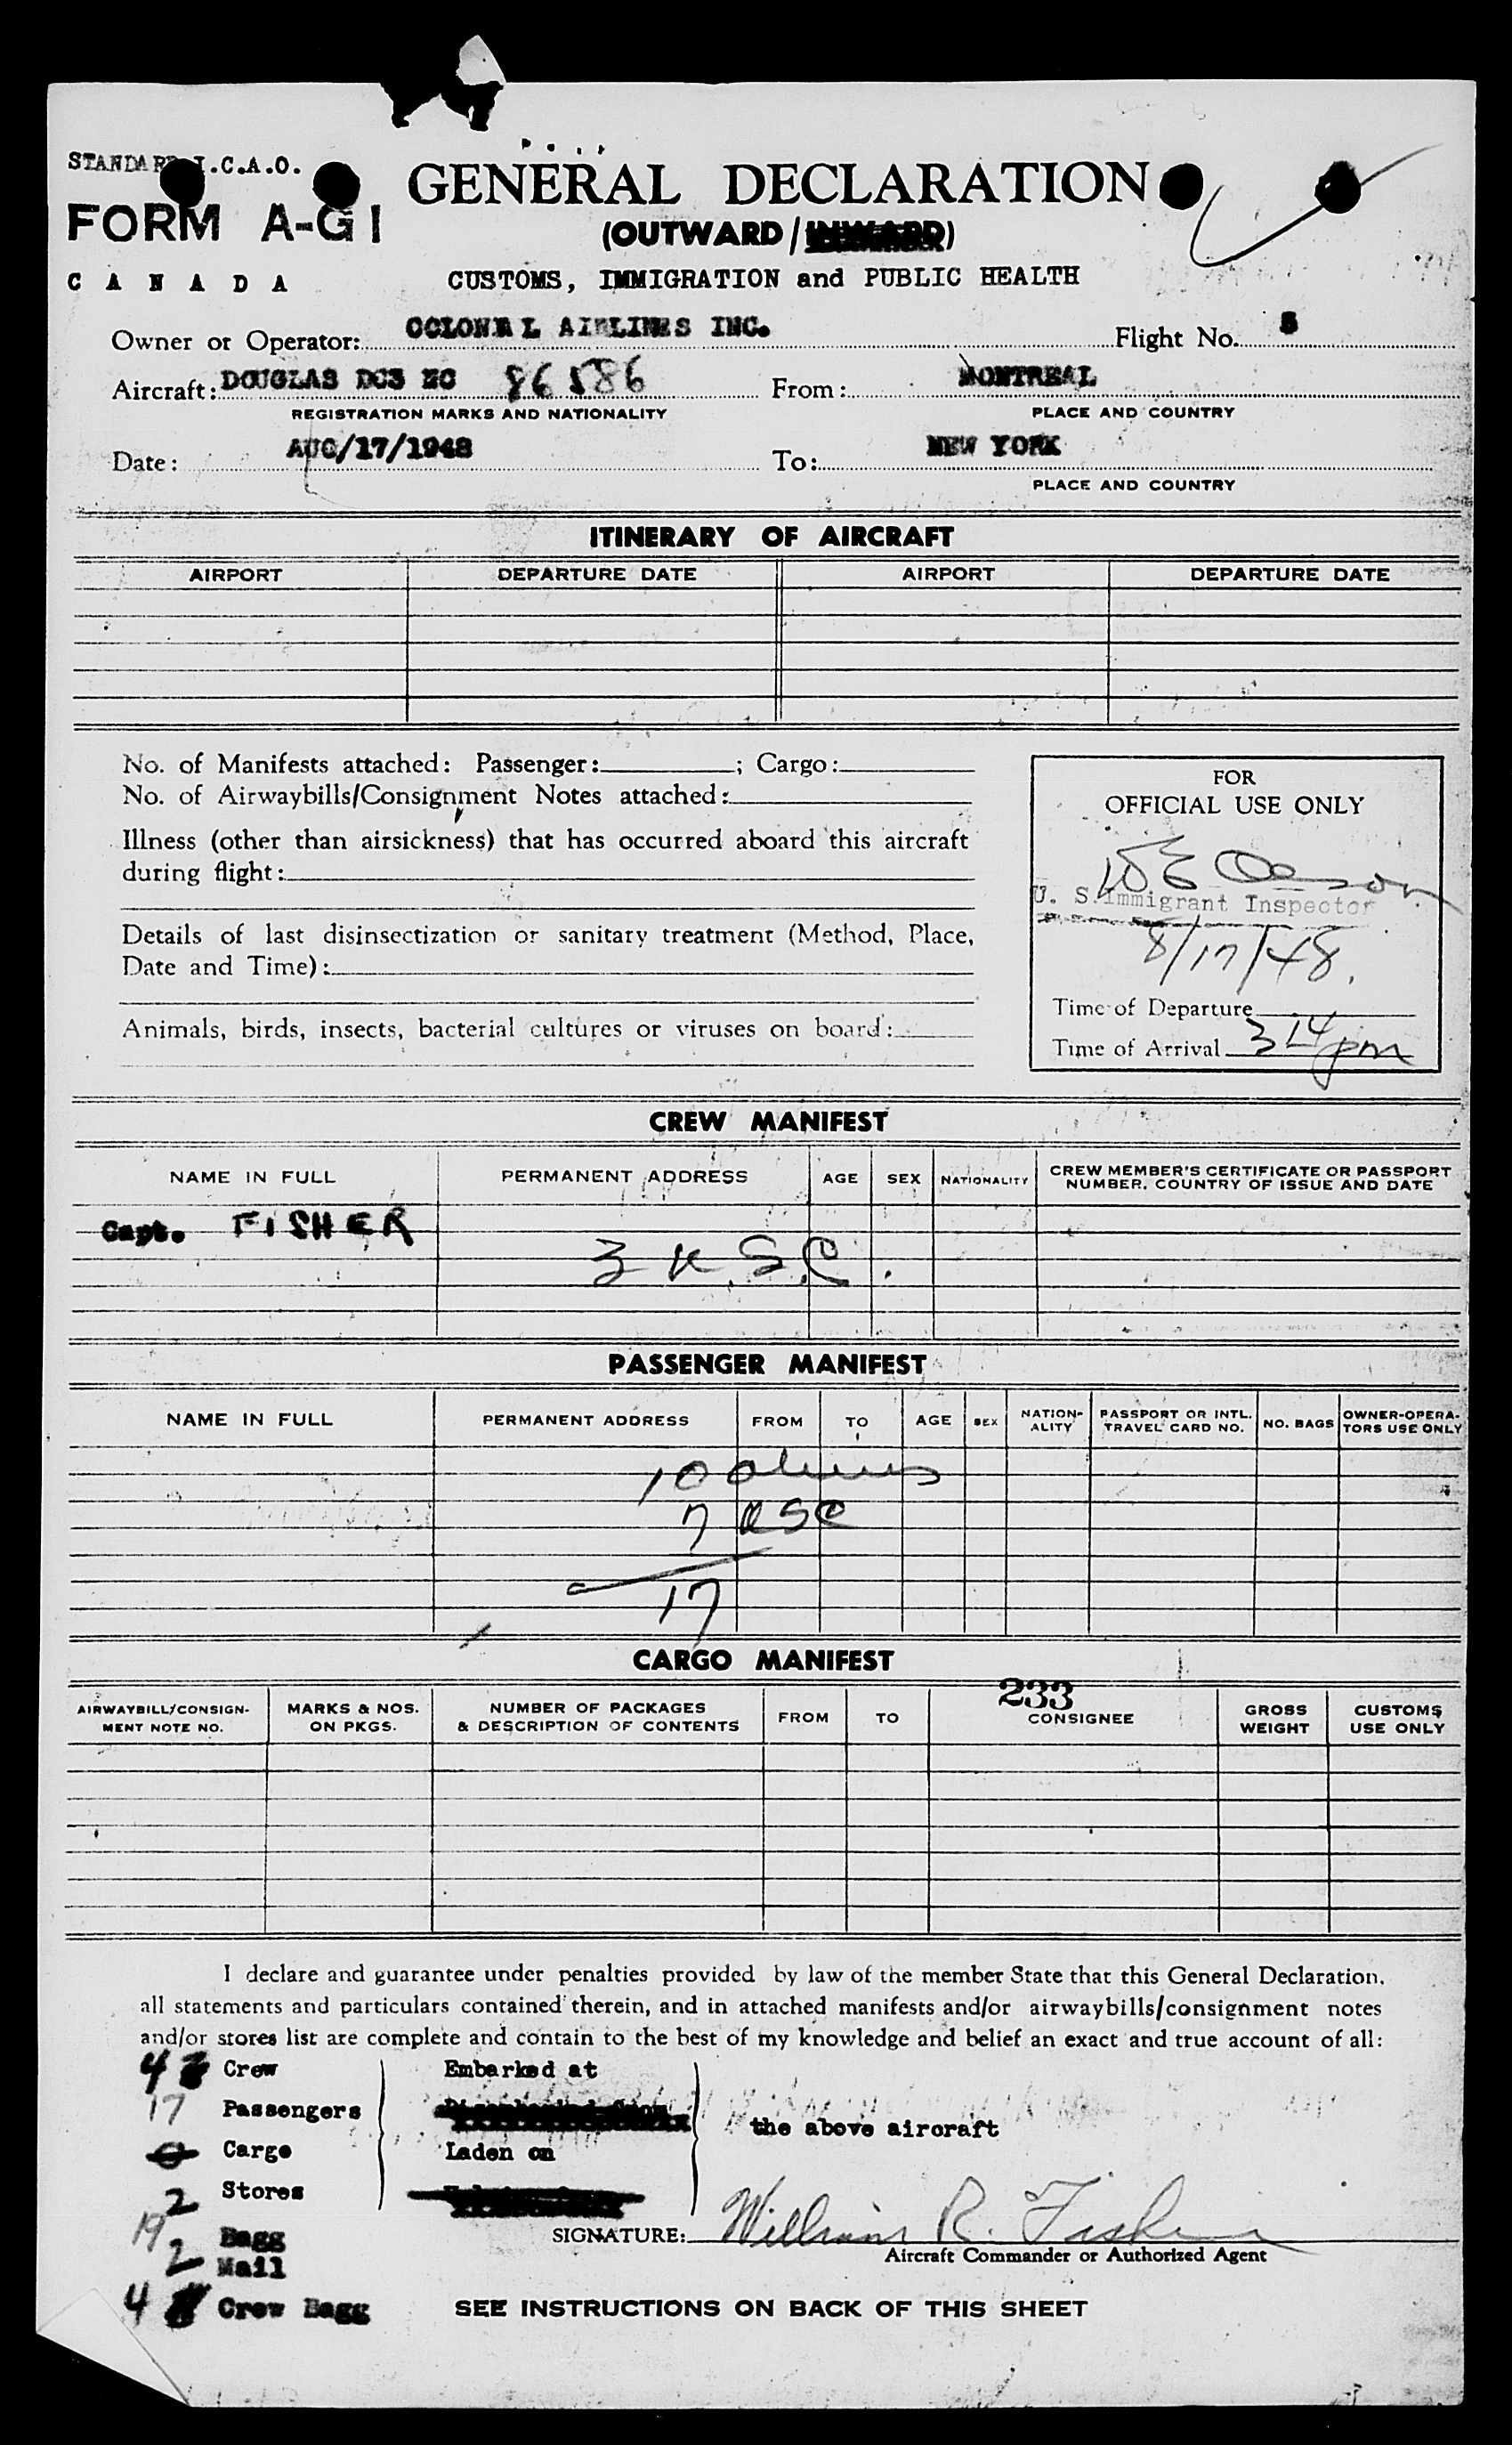 STANDARD I.C.A.O.
FORM A-G1
CANADA
GENERAL DECLARATION
(OUTWARD/INWARD)
CUSTOMS, IMMIGRATION and PUBLIC HEALTH
Owner or Operator: COLONIAL AIRLINES INC. Flight No. 5
Aircraft: DOUGLAS DC3 NC 86586 From: MONTREAL
REGISTRATION MARKS AND NATIONALITY PLACE AND COUNTRY
Date: AUG/17/1948 To: NEW YORK
PLACE AND COUNTRY
ITINERARY OF AIRCRAFT
AIRPORT DEPARTURE DATE AIRPORT DEPARTURE DATE
No. of Manifests attached: Passenger: ; Cargo:
No. of Airwaybills/Consignment Notes attached:
Illness (other than airsickness) that has occurred aboard this aircraft
during flight:
Details of last disinsectization or sanitary treatment (Method, Place,
Date and Time):
Animals, birds, insects, bacterial cultures or viruses on board:
FOR
OFFICIAL USE ONLY
U. S. Immigrant Inspector
8/17/48.
Time of Departure
Time of Arrival 3 14 pm
CREW MANIFEST
NAME IN FULL PERMANENT ADDRESS AGE SEX NATIONALITY CREW MEMBER'S CERTIFICATE OR PASSPORT
NUMBER, COUNTRY OF ISSUE AND DATE
Capt. FISHER
3 U.S.C.
PASSENGER MANIFEST
NAME IN FULL PERMANENT ADDRESS FROM TO AGE SEX NATION-
ALITY PASSPORT OR INTL.
TRAVEL CARD NO. NO. BAGS OWNER-OPERA-
TORS USE ONLY
10 aliens
7 USC
17
CARGO MANIFEST
233
AIRWAYBILL/CONSIGN-
MENT NOTE NO. MARKS & NOS.
ON PKGS. NUMBER OF PACKAGES
& DESCRIPTION OF CONTENTS FROM TO CONSIGNEE GROSS
WEIGHT CUSTOMS
USE ONLY
I declare and guarantee under penalties provided by law of the member State that this General Declaration,
all statements and particulars contained therein, and in attached manifests and/or airwaybills/consignment notes
and/or stores list are complete and contain to the best of my knowledge and belief an exact and true account of all:
4 Crew Embarked at
17 Passengers
the above aircraft
0 Cargo Laden on
2 Stores
SIGNATURE: William R. Fisher
19 Bagg
Aircraft Commander or Authorized Agent
2 Mail
4 Crew Bagg
SEE INSTRUCTIONS ON BACK OF THIS SHEET